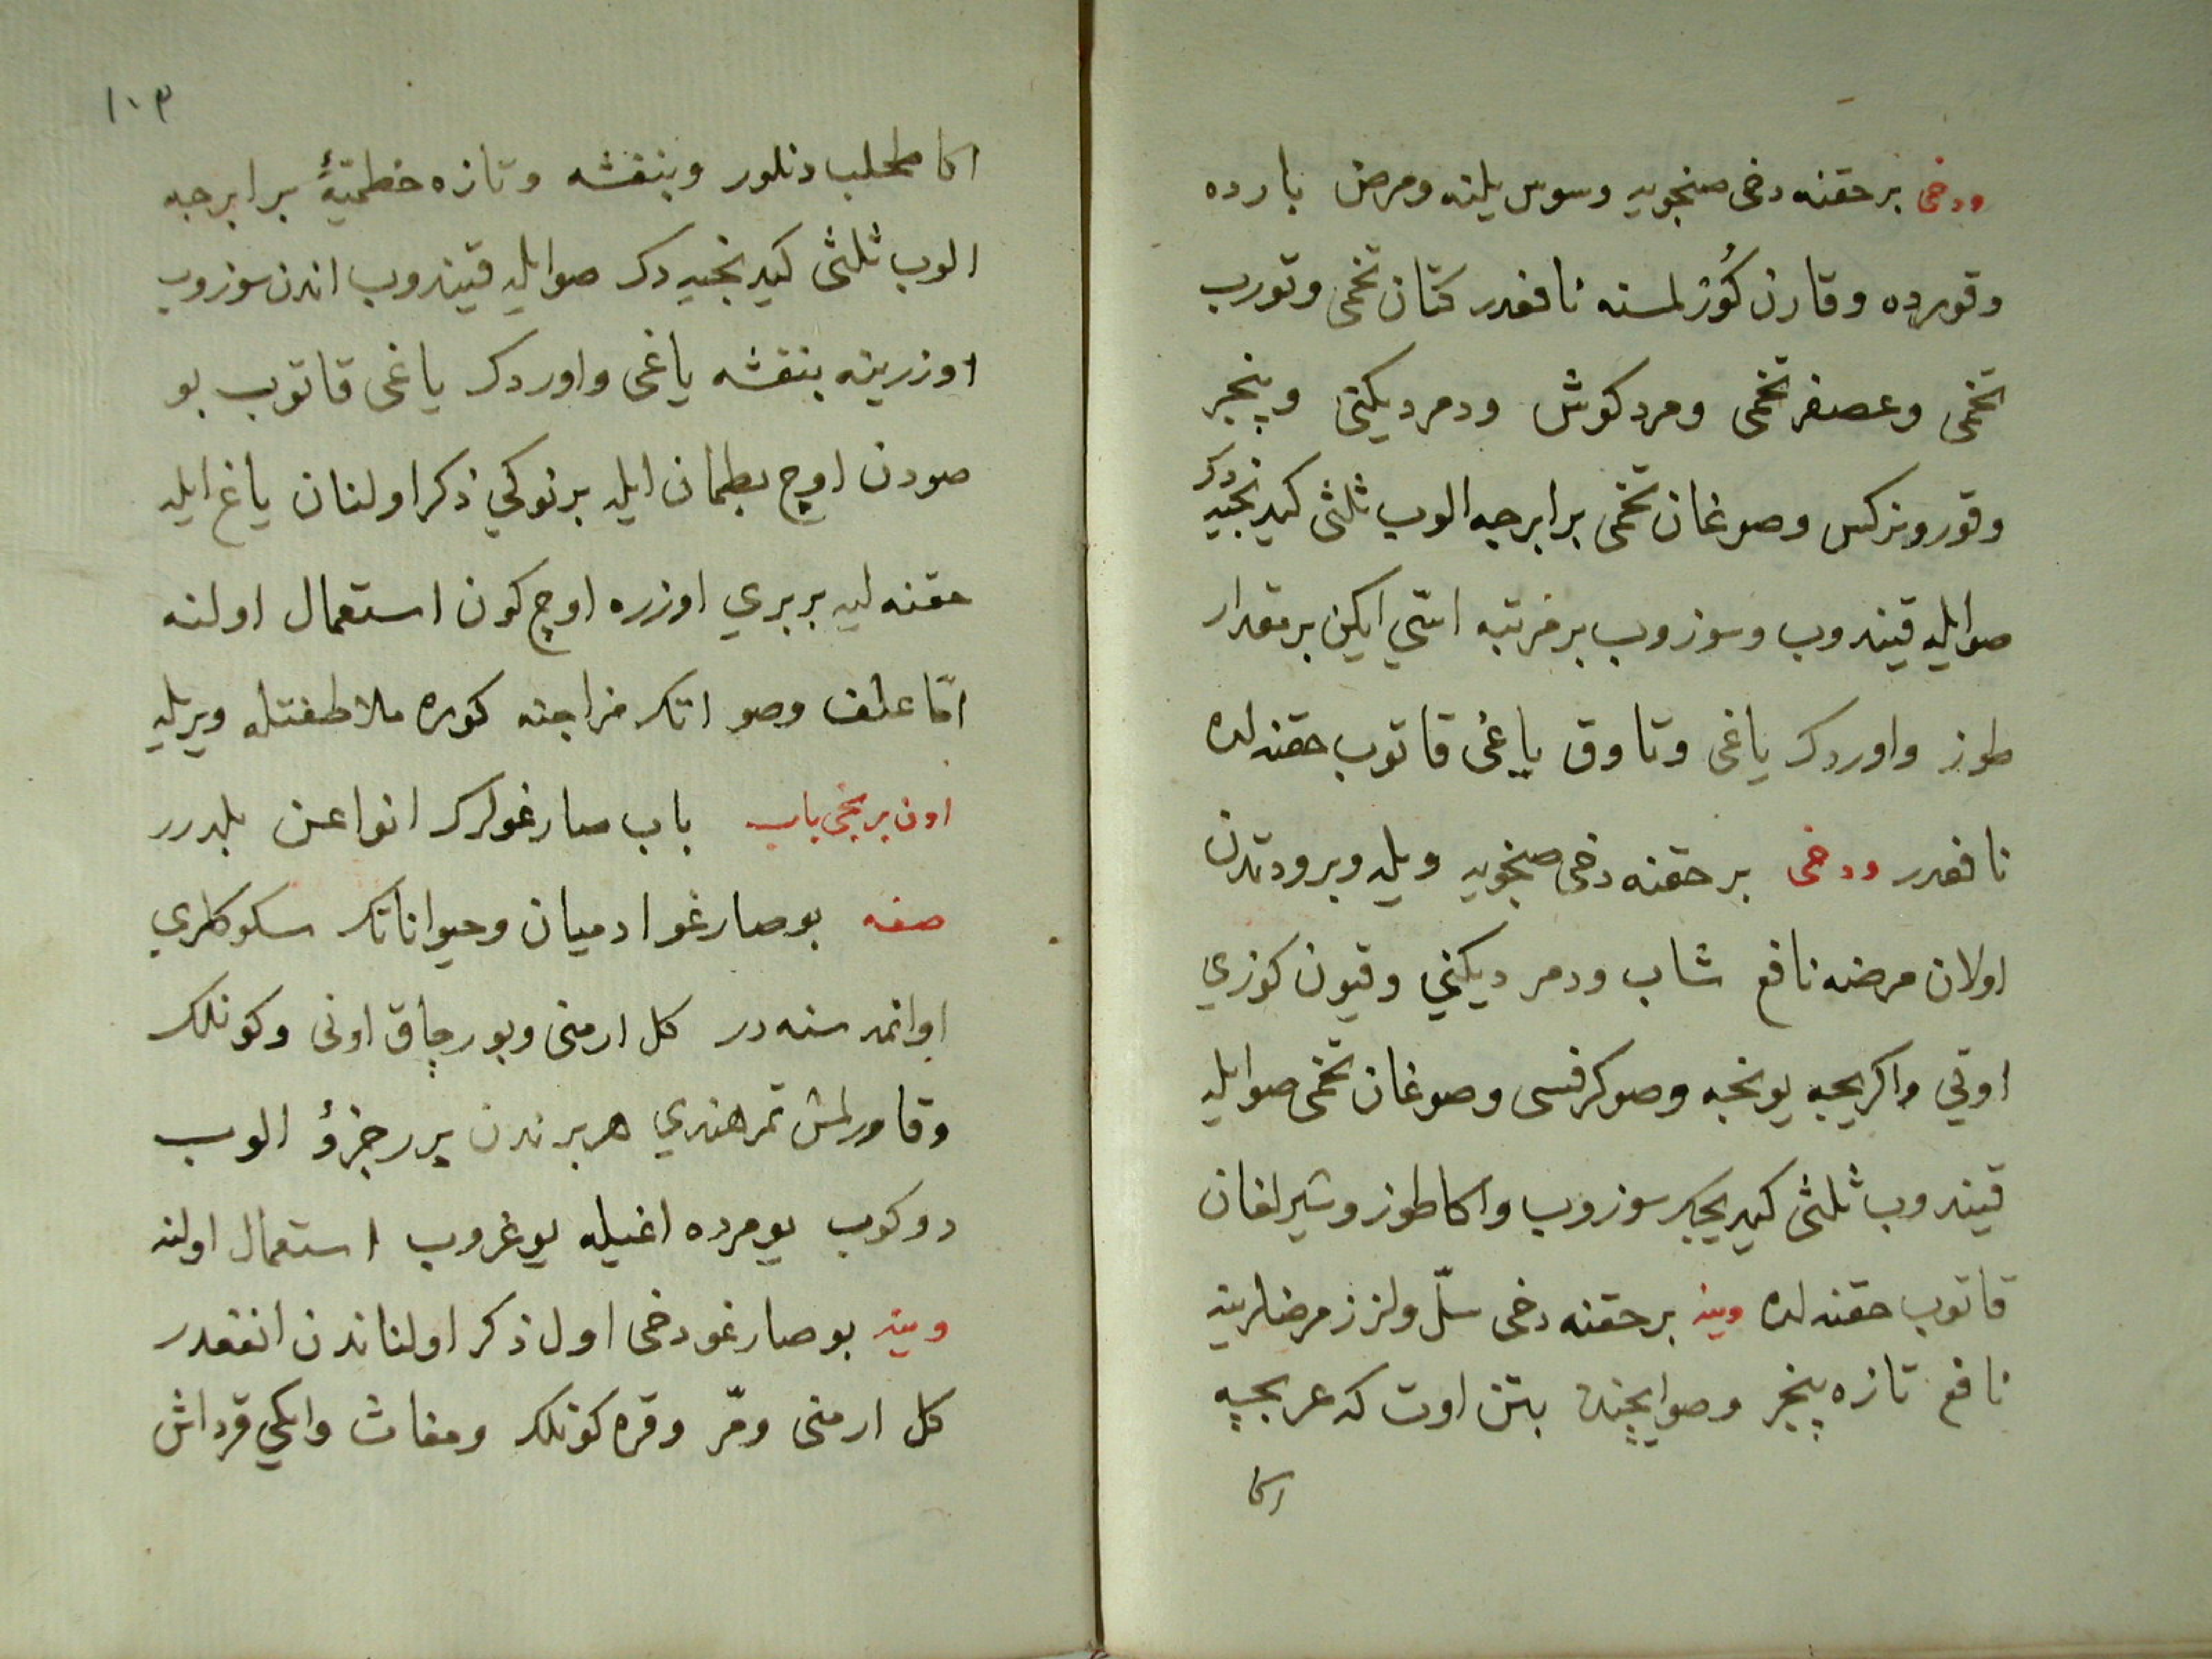 ودخی بر حقنه دخی صنجویه وسوس یلنه ومرض بارده
وقورده وقارن كُوزلمسنه نافعدر كتان تخمی وتورب
تخمی وعصفر تخمی ومرد كوش ودمر ديكنی وپنجر
وقورو نركس وصوغان تخمی برابرجه الوب ثلثی كیدنجیه دك
صوایله قیندوب وسوزوب بر مرتبه استی ایكین بر مقدار
طوز واوردك یاغی وتاوق یاغی قاتوب حقنه لده
نافعدر ودخی بر حقنه دخی صنجویه ویله وبرودتدن
اولان مرضه نافع شاب ودمر دیكنی وقیون كوزی
اوتی واكریجه یونجه وصوكرفسی وصوغان تخمی صوایله
قیندوب ثلثی كیدیجك سوزوب واكا طوز وشیرلغان
قاتوب حقنه لده وینه بر حقنه دخی سلّ ولزز مرضلرینه
نافع تازه پنجر وصو ایچنده بتن اوت كه عربجیه
اكا
١٠٣
اكا طحلب دنلور وبنفشه وتازه خطمیهٔ برابرجه
الوب ثلثی كیدنجیه دك صوایله قیندوب اندن سوزوب
اوزرینه بنفشه یاغی واوردك یاغی قاتوب بو
صودن اوچ بطمان ایله بر نوكی ذكر اولنان یاغ ایله
حقنه لیه بربری اوزره اوچ كون استعمال اولنه
امّا علف وصو انك مزاجنه كوره ملاطفتله ویریله
اون برنجی باب باب صارغولرك انواعن بلدرر
صفه بو صارغو ادمیان وحیواناتك سكوكلری
اوانمه سنه در كل ارمنی وبورچاق اونی وكونلك
وقاورلمش تمرهندی هر بر ندن برر جزؤ الوب
دوكوب یومرده اغیله یوغروب استعمال اولنه
وینه بو صارغو دخی اول ذكر اولناندن انفعدر
كل ارمنی ومّر وقره كونلك ومغاث وایكی قرداش